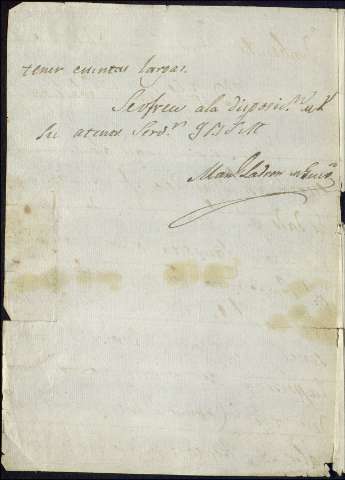 tener cuentas largas.
Se ofrece a la disposic.n de V.
su atento Serv.r Q B S M
Man.l Ladron de Guev.a